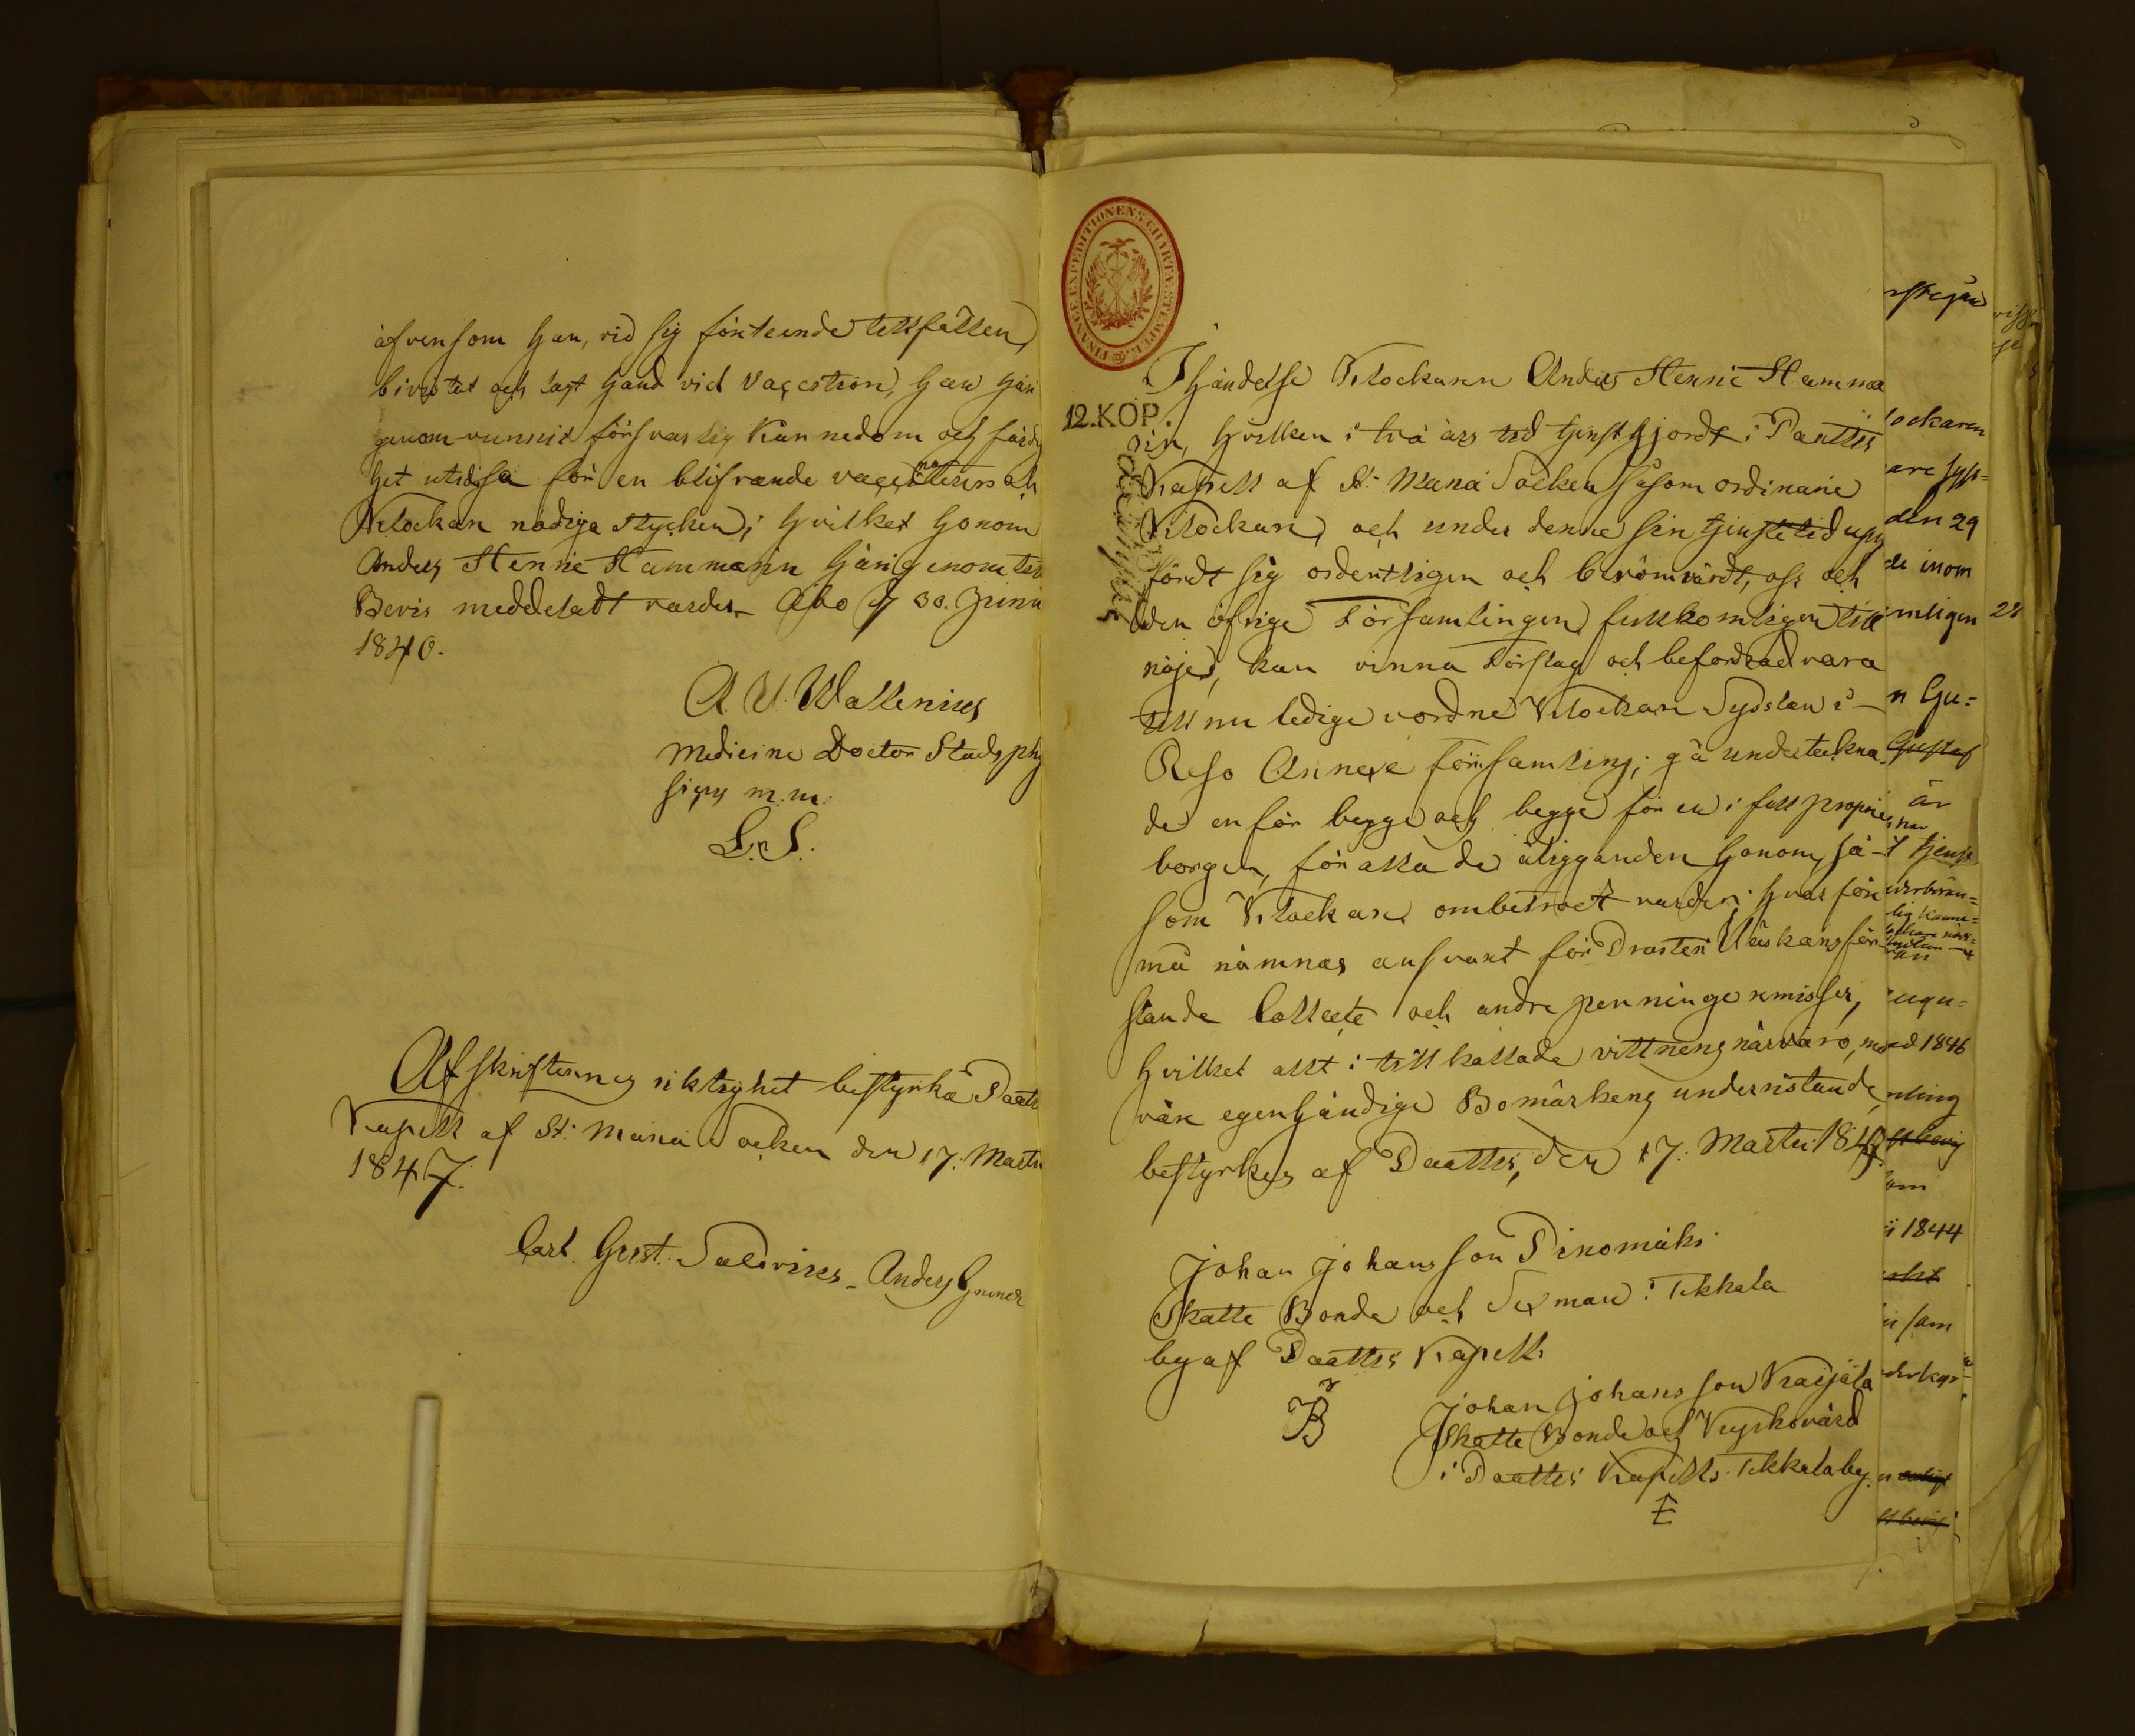 äfvensom han, vid sig förteende tillfällen,
bivistat och lagt hand vid Vaccation, han här
genom vunnit försvarlig Kännedom och färdig
het utidessa för en blifvande vaccinateurs och
Klockare nödige stycken; hvilket honom
Anders Henric Hammarin härigenom till
Bevis meddeladt varder. Åbo d 30. Junii
1840.
A. U. Wallenius
Medicine Doctor Stads phy
sicus m: m:
L. S.
Afskrifternes riktighet bestyrka Paattis
Kapell af St: Mariæ Socken den 17. Martii
1847.
Carl Gust. Salovius Anders
FINANCE EXPEDITIONENS CHARTÆ STEMPEL
12.KOP.
I händelse Klockaren Anders Henric Hamma
rin, hvilken i två års tid tjenstgjordt i Paattis
Kapell af St: Mariæ Socken såsom ordinarie
Klockare, och under denne sin tjenstetid upp
fördt sig ordentligen och berömvärdt, oss och
den öfrige Församlingen fullkomligen till
nöjes, kan vinna Förslag och befordrad vara
till nu ledige vordne Klockare Sysslan i
Reso Annexe församling; gå undertekna
de en för begge och begge för en i full proprie
borgen, för alla de åligganden honom, så
som Klockare ombetrodt varder; hvarföre
må nämnas ansvart för Prosten Uäskens för
stånde Collecte och andre penninge remisser,
hvilket allt i tillkallade vittnens närvaro, med
våre egenhändige Bomärkens undersittande
bestyrkes af Paattis, den 17. Martii 1847.
Johan Johansson Pinomäki
Skatte Bonde och Sexman i Tekkala
by af Paattis Kapell.
B
Johan Johansson Karjala
Skatte Bonde och Kyrkovärd
i Paattis Kapells Tekkala by.
E
ockaren
den 29
de inom
mligen 28
n Gu=
Gustaf
är
t tjenst
1846
mling
1844